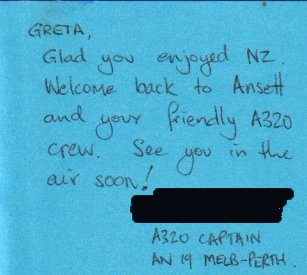 GRETA,
Glad you enjoyed NZ.
Welcome back to Ansett
and your friendly A320
crew. See you in the
air soon!
A320 CAPTAIN
AN 19 MELB-PERTH.